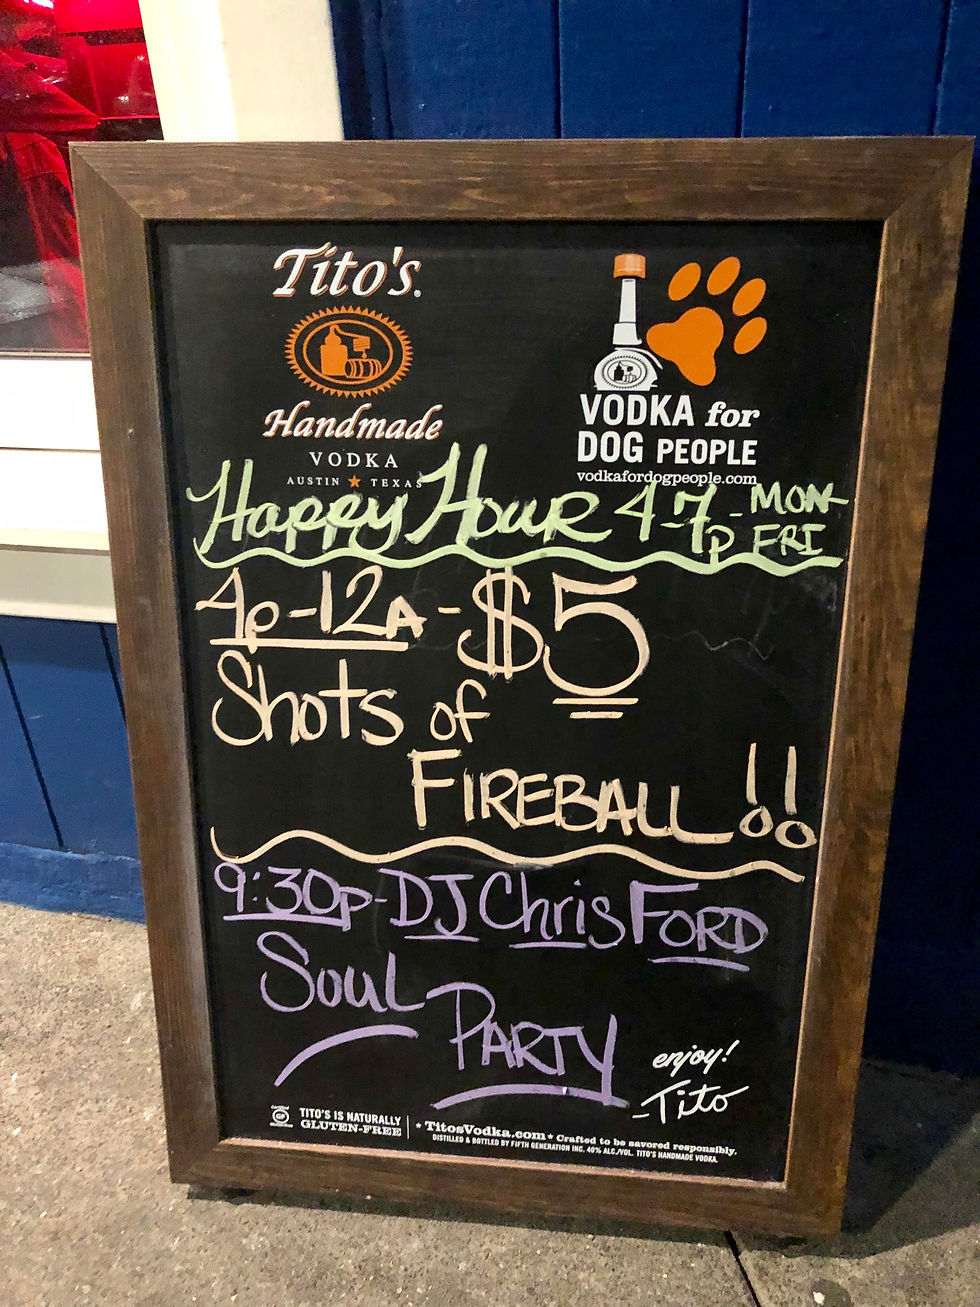 Tito's
Handmade
VODKA
AUSTIN ★ TEXAS
VODKA for
DOG PEOPLE
vodkafordogpeople.com
Happy Hour 4-7p - MON-
FRI
4p-12A - $5
Shots of
FIREBALL !!
9:30p - DJ Chris FORD
Soul
PARTY
enjoy!
-Tito
TITO'S IS NATURALLY
GLUTEN-FREE
★ TitosVodka.com ★ Crafted to be savored responsibly.
DISTILLED & BOTTLED BY FIFTH GENERATION INC. 40% ALC./VOL. TITO'S HANDMADE VODKA.